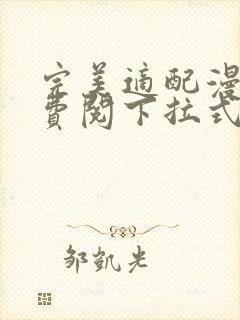 完美适配漫
费阅下拉式
邹凯光